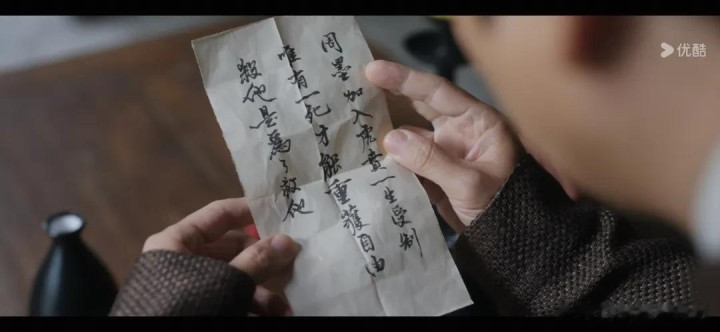 周墨加入虎賁一生受制
唯有一死才能重獲自由
殺他是為了救他
优酷